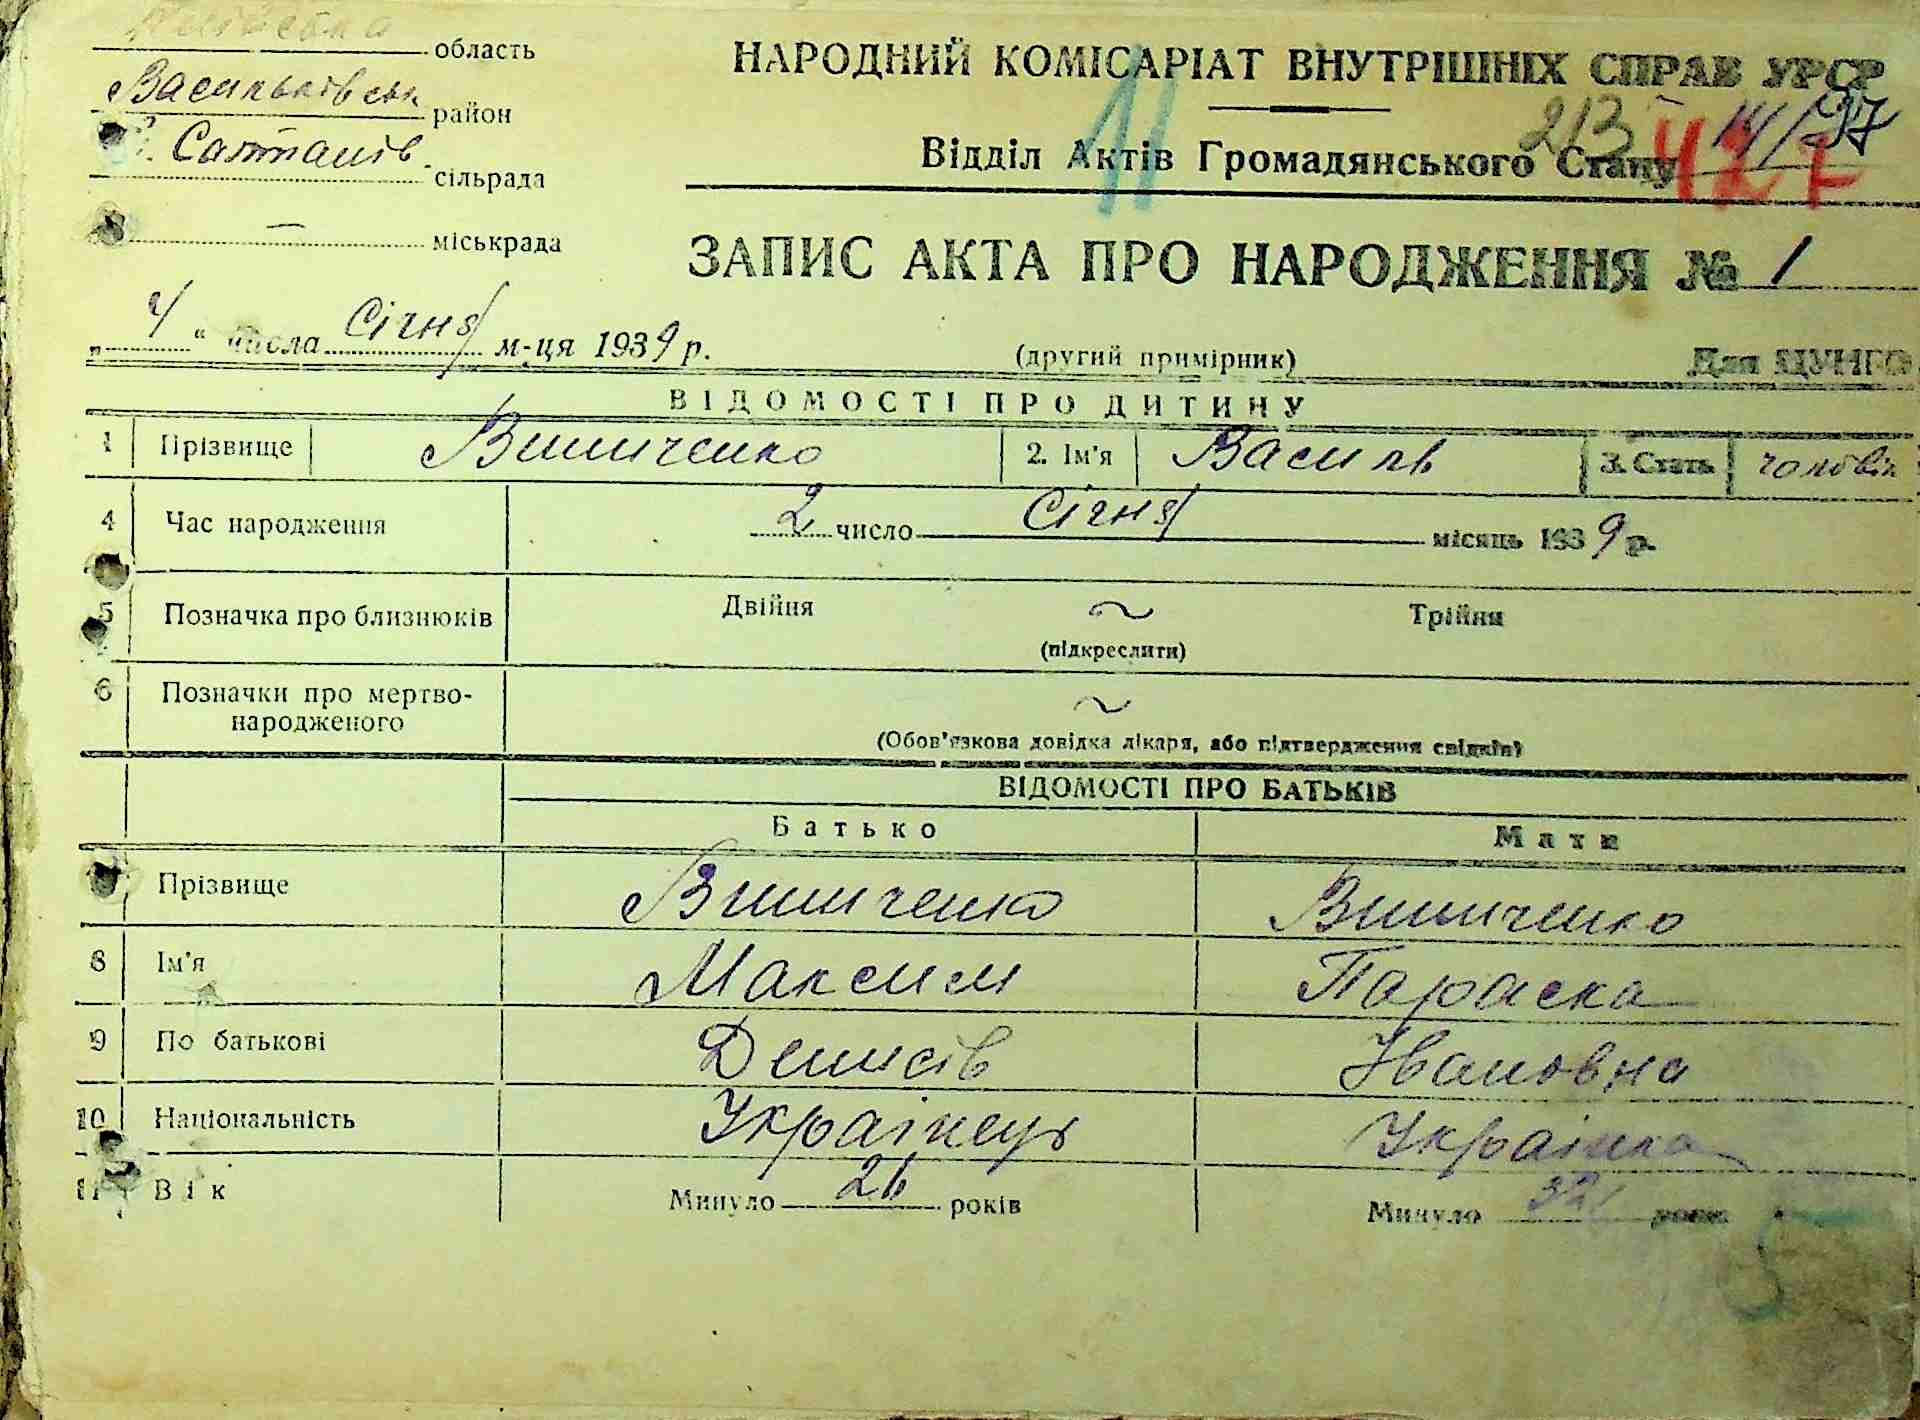 Київська область
Васильківськ. район
с. Салтанів. сільрада
— міськрада
НАРОДНИЙ КОМІСАРІАТ ВНУТРІШНІХ СПРАВ УРСР
11 213 14/37
Відділ Актів Громадянського Стану
ЗАПИС АКТА ПРО НАРОДЖЕННЯ № 1
„4“ числа Січня м-ця 1939 р. (другий примірник) Для ЦУНГО
ВІДОМОСТІ ПРО ДИТИНУ
1 Прізвище Винниченко 2. Ім'я Василь 3. Стать чоловік
4 Час народження 2 число Січня місяць 1939 р.
5 Позначка про близнюків Двійня ~ Трійня
(підкреслити)
6 Позначки про мертво-
народженого ~
(Обов'язкова довідка лікаря, або підтвердження свідків)
ВІДОМОСТІ ПРО БАТЬКІВ
Батько Мати
Прізвище Винниченко Винниченко
8 Ім'я Максим Параска
9 По батькові Денисів Івановна
10 Національність Українець Українка
11 Вік Минуло 26 років Минуло 32 років
5